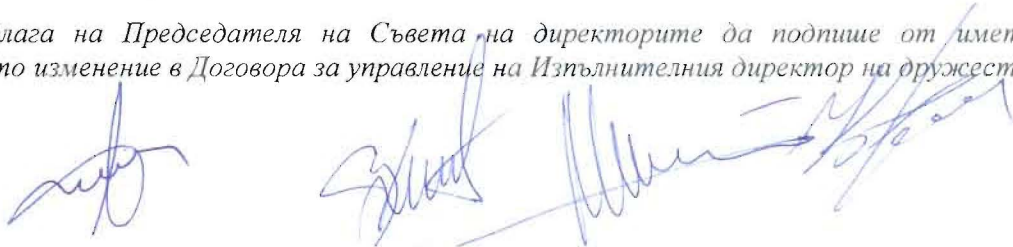 лага на Председателя на Съвета на директорите да подпише от имет
то изменение в Договора за управление на Изпълнителния директор на дружест